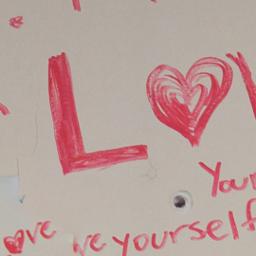 L♥
Your
♥ve ve yourself